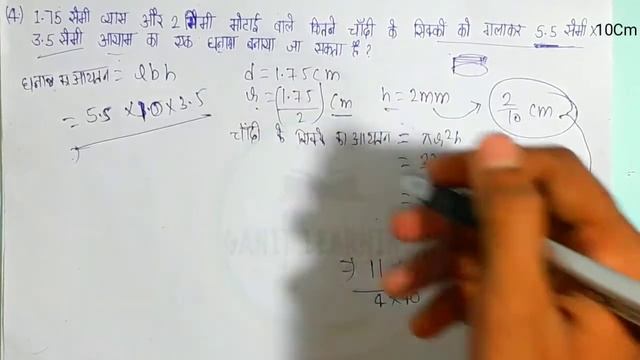 (4) 1.75 सेमी व्यास और 2 मिमी मोटाई वाले कितने चाँदी के सिक्कों को गलाकर 5.5 सेमी × 10Cm
3.5 सेमी आयाम का एक घनाभ बनाया जा सकता है?
घनाभ का आयतन = lbh
= 5.5 × 10 × 3.5
d = 1.75 cm
r = (1.75/2) cm h = 2mm 2/10 cm
चाँदी के सिक्के का आयतन = πr²h
=
=
⇒ 11
4×10